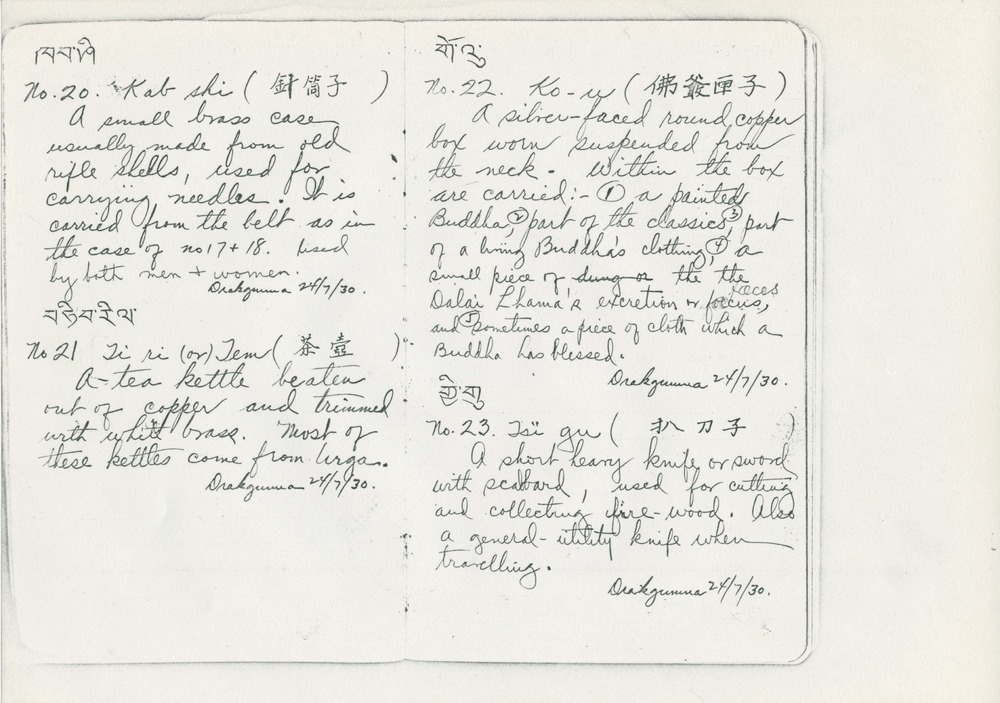 ཁབ་ཤི
No. 20. Kab shi ( 針筒子 )
A small brass case
usually made from old
rifle shells, used for
carrying needles. It is
carried from the belt as in
the case of no 17 + 18. Used
by both men + women.
Drakgumna 24/7/30.
No 21 Ti ri (or) Tem ( 茶壺 )
A tea kettle beaten
out of copper and trimmed
with white brass. Most of
these kettles come from Urga.
Drakgumna 24/7/30.
གོ་འུ་
No. 22. Ko-u ( 佛爺匣子 )
A silver-faced round copper
box worn suspended from
the neck. Within the box
are carried:- ① a painted
Buddha, ② part of the classics, ③ part
of a living Buddha's clothing, ④ a
small piece of dung or the the
Dalai Lhama's excretion or foecus, faeces
and ⑤ sometimes a piece of cloth which a
Buddha has blessed.
Drakgumna 24/7/30.
No. 23. Tsï gu ( 扒刀子 )
A short heavy knife or sword
with scabbard, used for cutting
and collecting fire-wood. Also
a general-utility knife when
travelling.
Drakgumna 24/7/30.